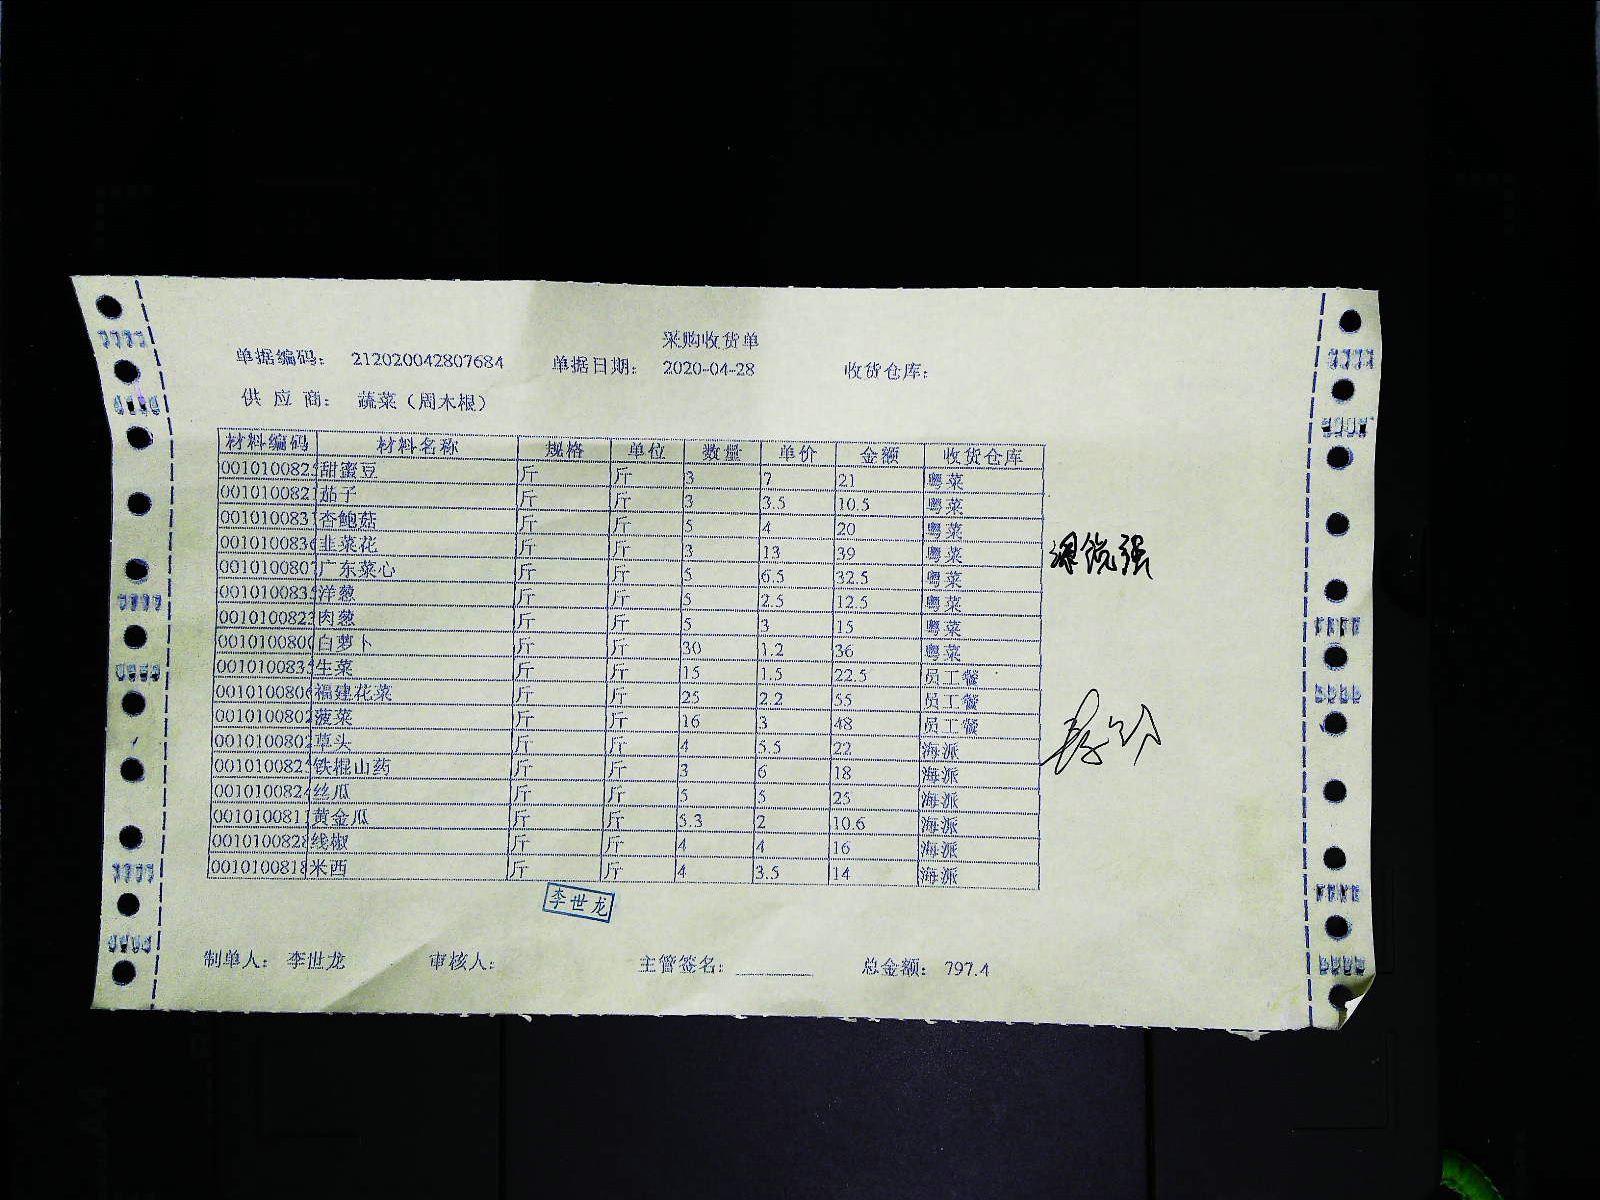 采购收货单
单据编码： 212020042807684 单据日期： 2020-04-28 收货仓库：
供 应 商： 蔬菜（周木根）
材料编码 材料名称 规格 单位 数量 单价 金额 收货仓库
001010082 甜蜜豆 斤 斤 3 7 21 粤菜
001010082 茄子 斤 斤 3 3.5 10.5 粤菜
001010083 杏鲍菇 斤 斤 5 4 20 粤菜
001010083 韭菜花 斤 斤 3 13 39 粤菜
001010080 广东菜心 斤 斤 5 6.5 32.5 粤菜
001010083 洋葱 斤 斤 5 2.5 12.5 粤菜
001010082 肉葱 斤 斤 5 3 15 粤菜
001010080 白萝卜 斤 斤 30 1.2 36 粤菜
001010083 生菜 斤 斤 15 1.5 22.5 员工餐
001010080 福建花菜 斤 斤 25 2.2 55 员工餐
001010080 菠菜 斤 斤 16 3 48 员工餐
001010080 草头 斤 斤 4 5.5 22 海派
001010082 铁棍山药 斤 斤 3 6 18 海派
001010082 丝瓜 斤 斤 5 5 25 海派
001010081 黄金瓜 斤 斤 5.3 2 10.6 海派
001010082 线椒 斤 斤 4 4 16 海派
001010081 米西 斤 斤 4 3.5 14 海派
李世龙
制单人： 李世龙 审核人： 主管签名： 总金额： 797.4